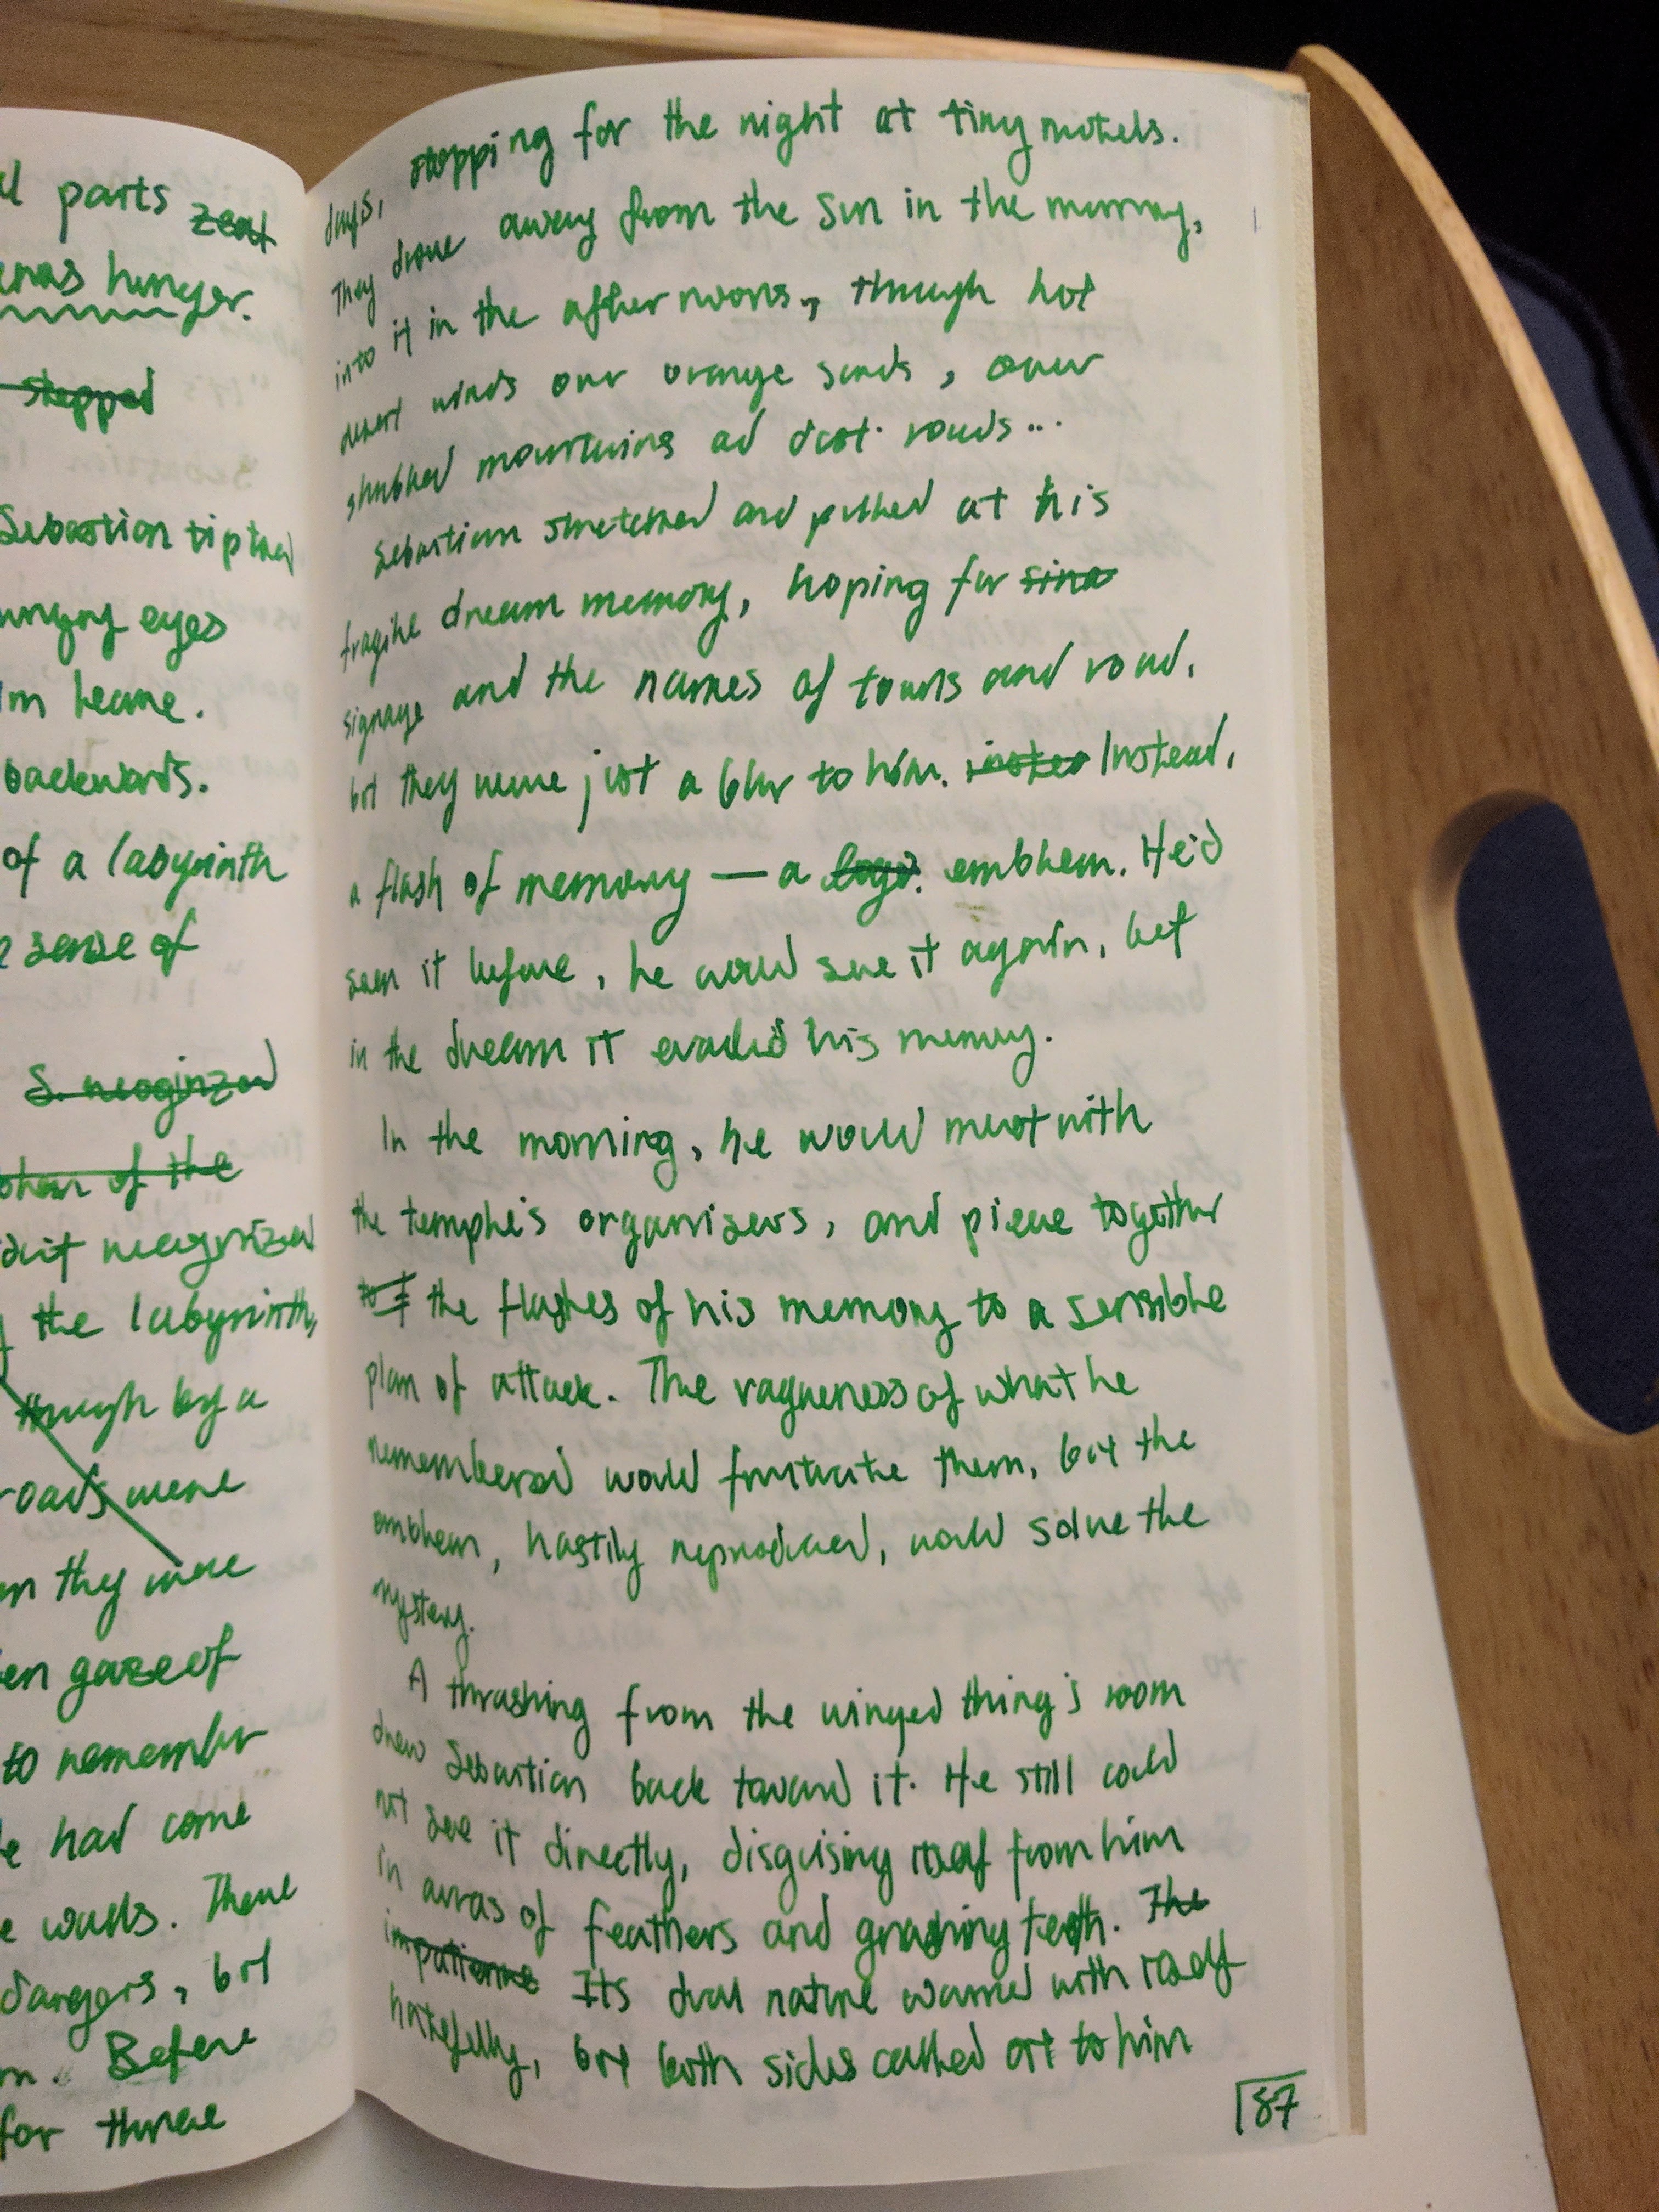 l parts zeal
enas hunger.
stepped
Sebastian tiptoed
ungry eyes
im leave.
backwards.
of a labyrinth
sense of
S. recoginzed
of the
recognized
the labyrinth,
through by a
roads were
they were
gaze of
to remember
had come
walls. There
dangers, but
Before
for three
days, stopping for the night at tiny motels.
They drove away from the sun in the morning,
into it in the afternoons, through hot
desert winds over orange sands, over
shubbed mountains ad dirt roads...
Sebastian stretched and pulled at his
fragile dream memory, hoping for sina
signage and the names of towns and road,
but they were just a blur to him. insted Instead,
a flash of memory — a logo. emblem. He'd
seen it before, he would see it again, but
in the dream it evaded his memory.
In the morning, he would meet with
the temple's organizers, and piece together
to the flashes of his memory to a sensible
plan of attack. The vagueness of what he
remembered would frustrate them, but the
emblem, hastily reproduced, would solve the
mystery.
A thrashing from the winged thing's room
drew Sebastian back toward it. He still could
not see it directly, disguising itself from him
in auras of feathers and gnashing teeth. The
impatience Its dual nature warred with itself
hatefully, but both sides called out to him
87